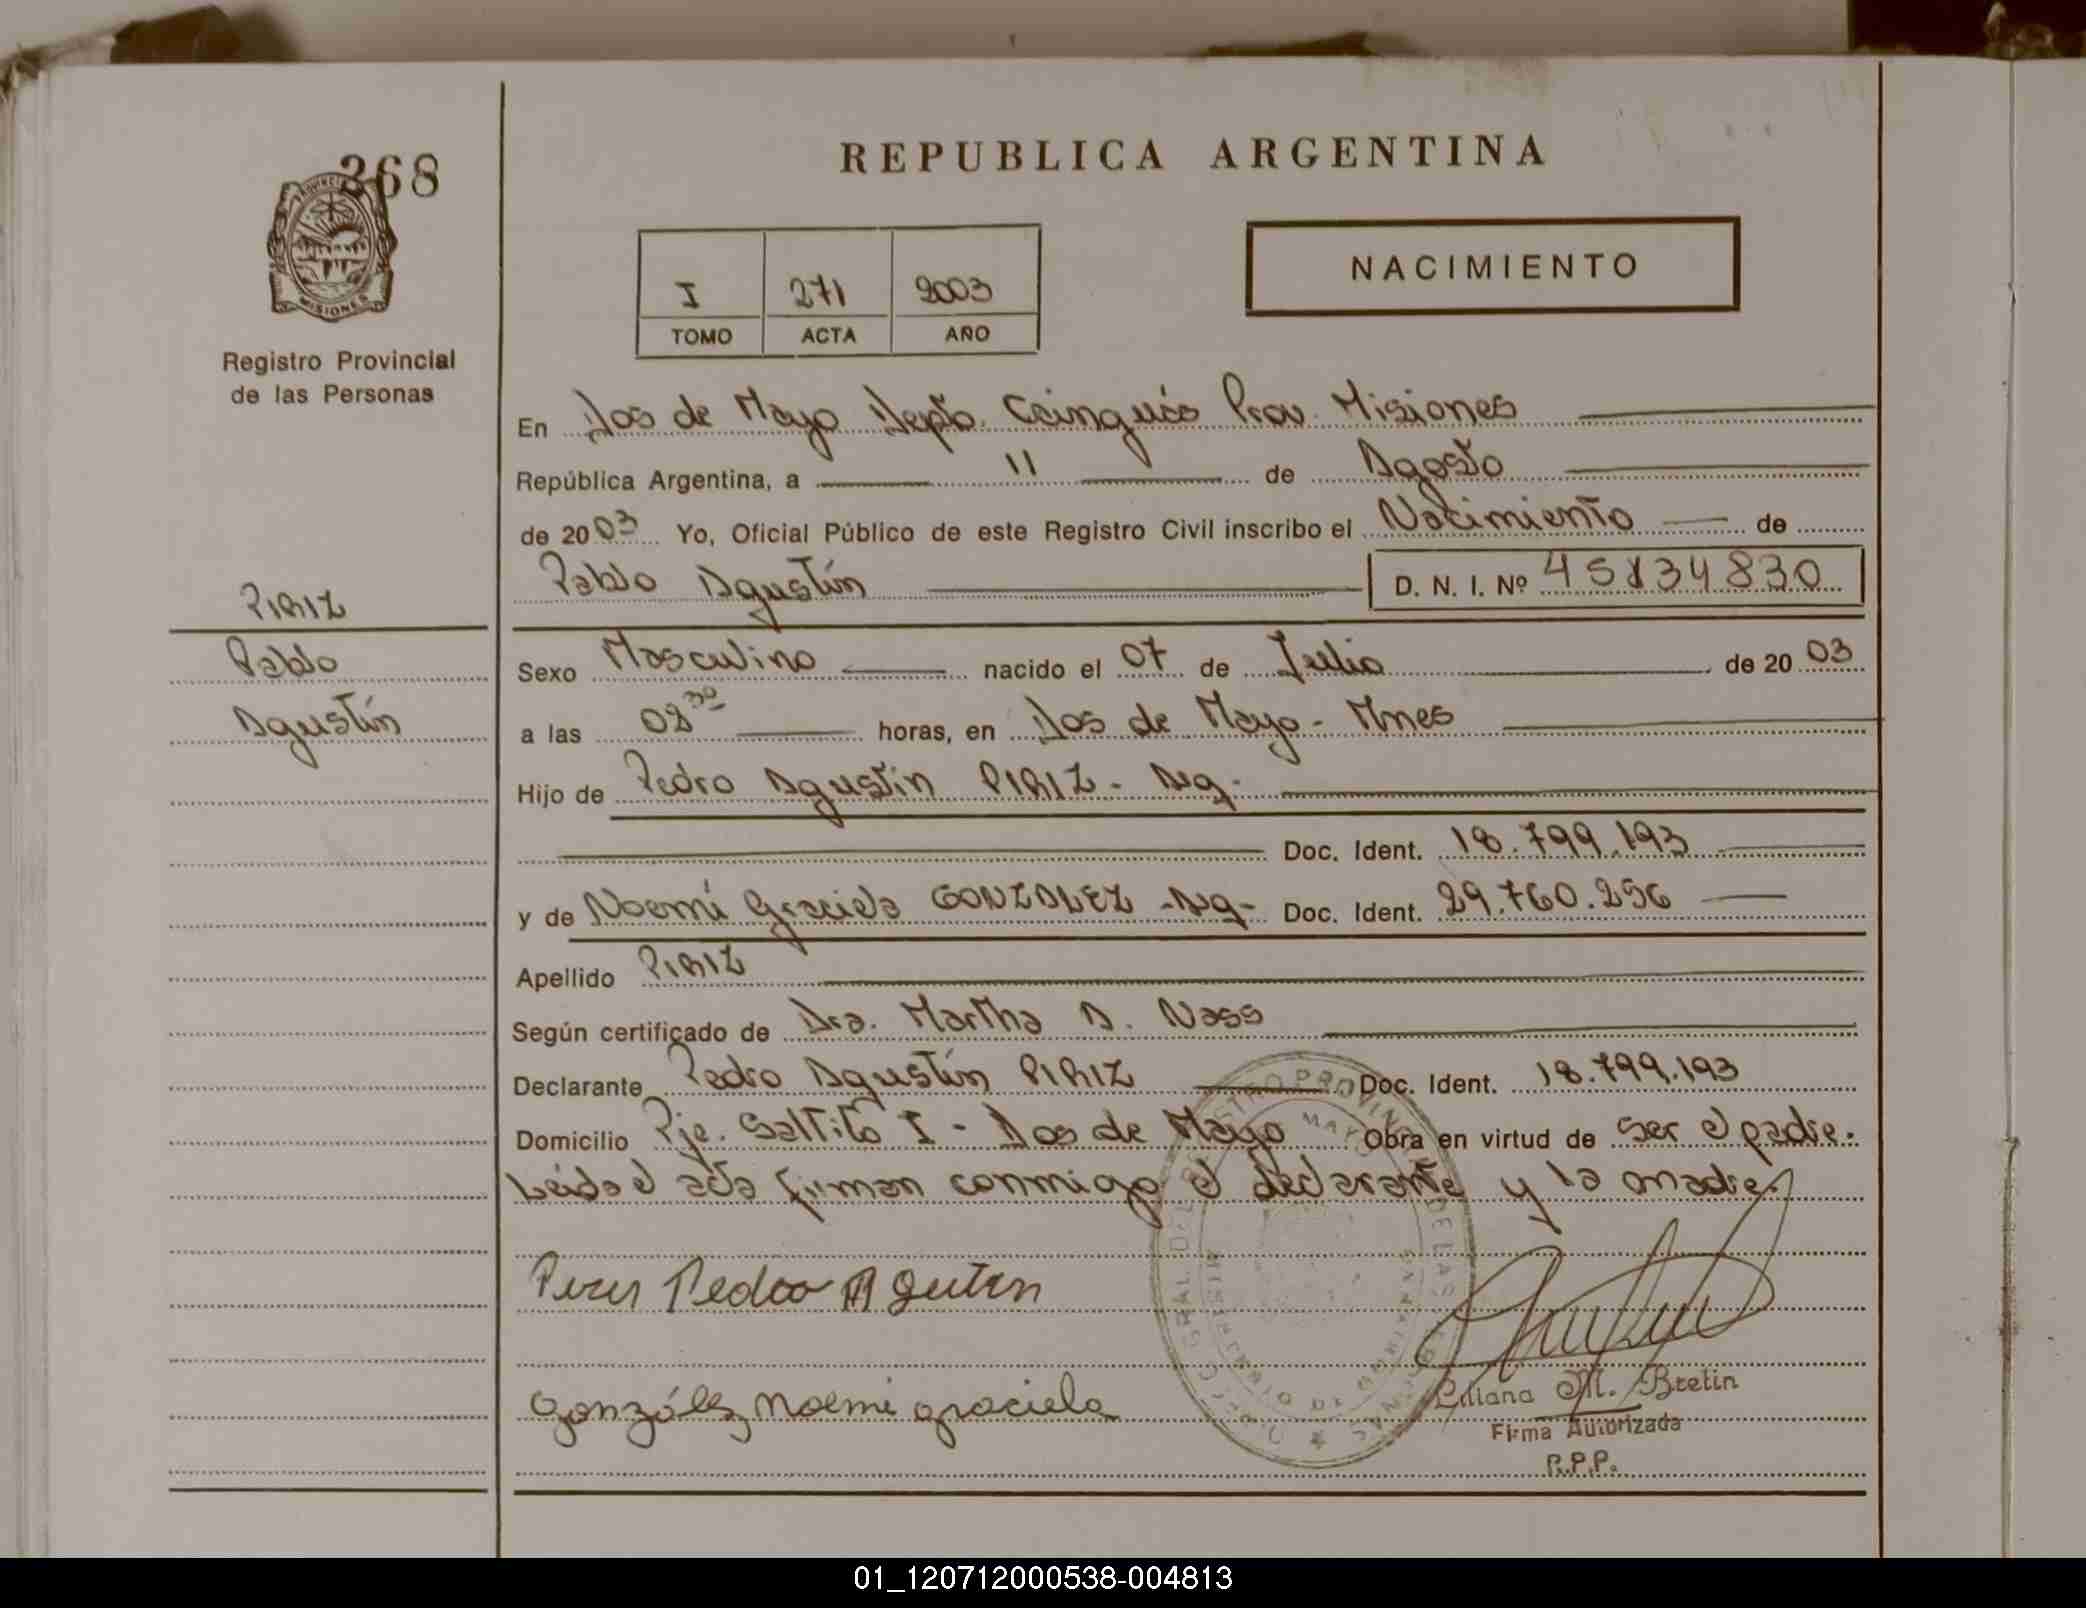 368
REPUBLICA ARGENTINA
PROVINCIA
MISIONES
Registro Provincial
de las Personas
I 271 2003
TOMO ACTA AÑO
NACIMIENTO
En Dos de Mayo Depto. Cainguás Prov. Misiones
República Argentina, a 11 de Agosto
de 2003 Yo, Oficial Público de este Registro Civil inscribo el Nacimiento de
Pablo Agustín D. N. I. Nº 45134830
PIRIZ
Pablo
Agustín
Sexo Masculino nacido el 07 de Julio de 2003
a las 08 30 horas, en Dos de Mayo - Mnes
Hijo de Pedro Agustín PIRIZ - Arg -
Doc. Ident. 18.799.193
y de Noemí Graciela GONZALEZ - Arg - Doc. Ident. 29.760.256
Apellido PIRIZ
Según certificado de Dra. Martha A. Nass
Declarante Pedro Agustín PIRIZ Doc. Ident. 18.799.193
Domicilio Pje. Saltito I - Dos de Mayo Obra en virtud de ser el padre.
Leída el acta firman conmigo el declarante y la madre.
Pedro Agustin
González Noemi graciela
Liliana M. Bretin
Firma Autorizada
R.P.P.
01_120712000538-004813